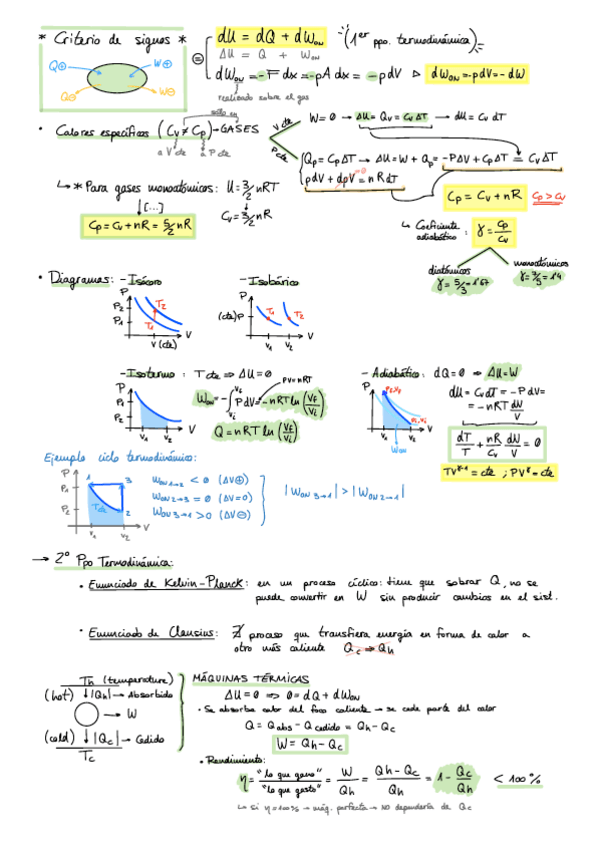 * Criterio de signos *
Q⊕ W⊕
Q⊖ W⊖
dU = dQ + dWon (1er ppo. termodinámica)
ΔU = Q + Won
dWon = -F dx = -pA dx = -pdV ▷ dWon = -pdV = -dW
realizado sobre el gas
sólo en
• Calores específicos (Cv ≠ Cp) → GASES
a V cte a P cte
V cte W=0 → ΔU = Qv = Cv ΔT → dU = Cv dT
P cte Qp = Cp ΔT → ΔU = W + Qp = -PΔV + CpΔT = CvΔT
pdV + dpV = nRdT
=0
Cp = Cv + nR Cp > Cv
↳ * Para gases monoatómicos: U = 3/2 nRT
↓ [...] Cv = 3/2 nR
Cp = Cv + nR = 5/2 nR
↳ Coeficiente adiabático: γ = Cp/Cv
diatómicos γ = 5/3 = 1'67
monoatómicos γ = 7/5 = 1'4
• Diagramas: - Isócoro - Isobárico
P P2 P1 T2 T1 V V (cte)
P (cte)P T1 T2 V V1 V2
- Isotermo: T cte ⇒ ΔU = 0
PV = nRT
Won = -∫ PdV = -nRT ln (Vf/Vi)
Vf Vi
Q = nRT ln (Vf/Vi)
P P1 P2 V1 V2 V
- Adiabático: dQ = 0 ⇒ ΔU = W
dU = CvdT = -PdV =
= -nRT dV/V
dT/T + nR/Cv dV/V = 0
TV^γ-1 = cte ; PV^γ = cte
P V Won
Ejemplo ciclo termodinámico:
P P1 P2 1 3 2 Tcte V1 V2 V
Won 1→2 < 0 (ΔV⊕)
Won 2→3 = 0 (ΔV=0)
Won 3→1 > 0 (ΔV⊖)
|Won 3→1| > |Won 2→1|
→ 2º Ppo Termodinámica:
• Enunciado de Kelvin-Planck: en un proceso cíclico: tiene que sobrar Q, no se
puede convertir en W sin producir cambios en el sist.
• Enunciado de Clausius: ∄ proceso que transfiera energía en forma de calor a
otro más caliente Qc ⇒ Qh
Th (temperature)
(hot) ↓|Qh| → Absorbido
→ W
(cold) ↓|Qc| → Cedido
Tc
MÁQUINAS TÉRMICAS
ΔU = 0 ⇒ 0 = dQ + dWon
• Se absorbe calor del foco caliente → se cede parte del calor
Q = Qabs - Qcedido = Qh - Qc
W = Qh - Qc
• Rendimiento:
η = "lo que gano" / "lo que gasto" = W/Qh = (Qh - Qc)/Qh = 1 - Qc/Qh < 100%
↳ si η = 100% → máq. perfecta → NO dependería de Qc